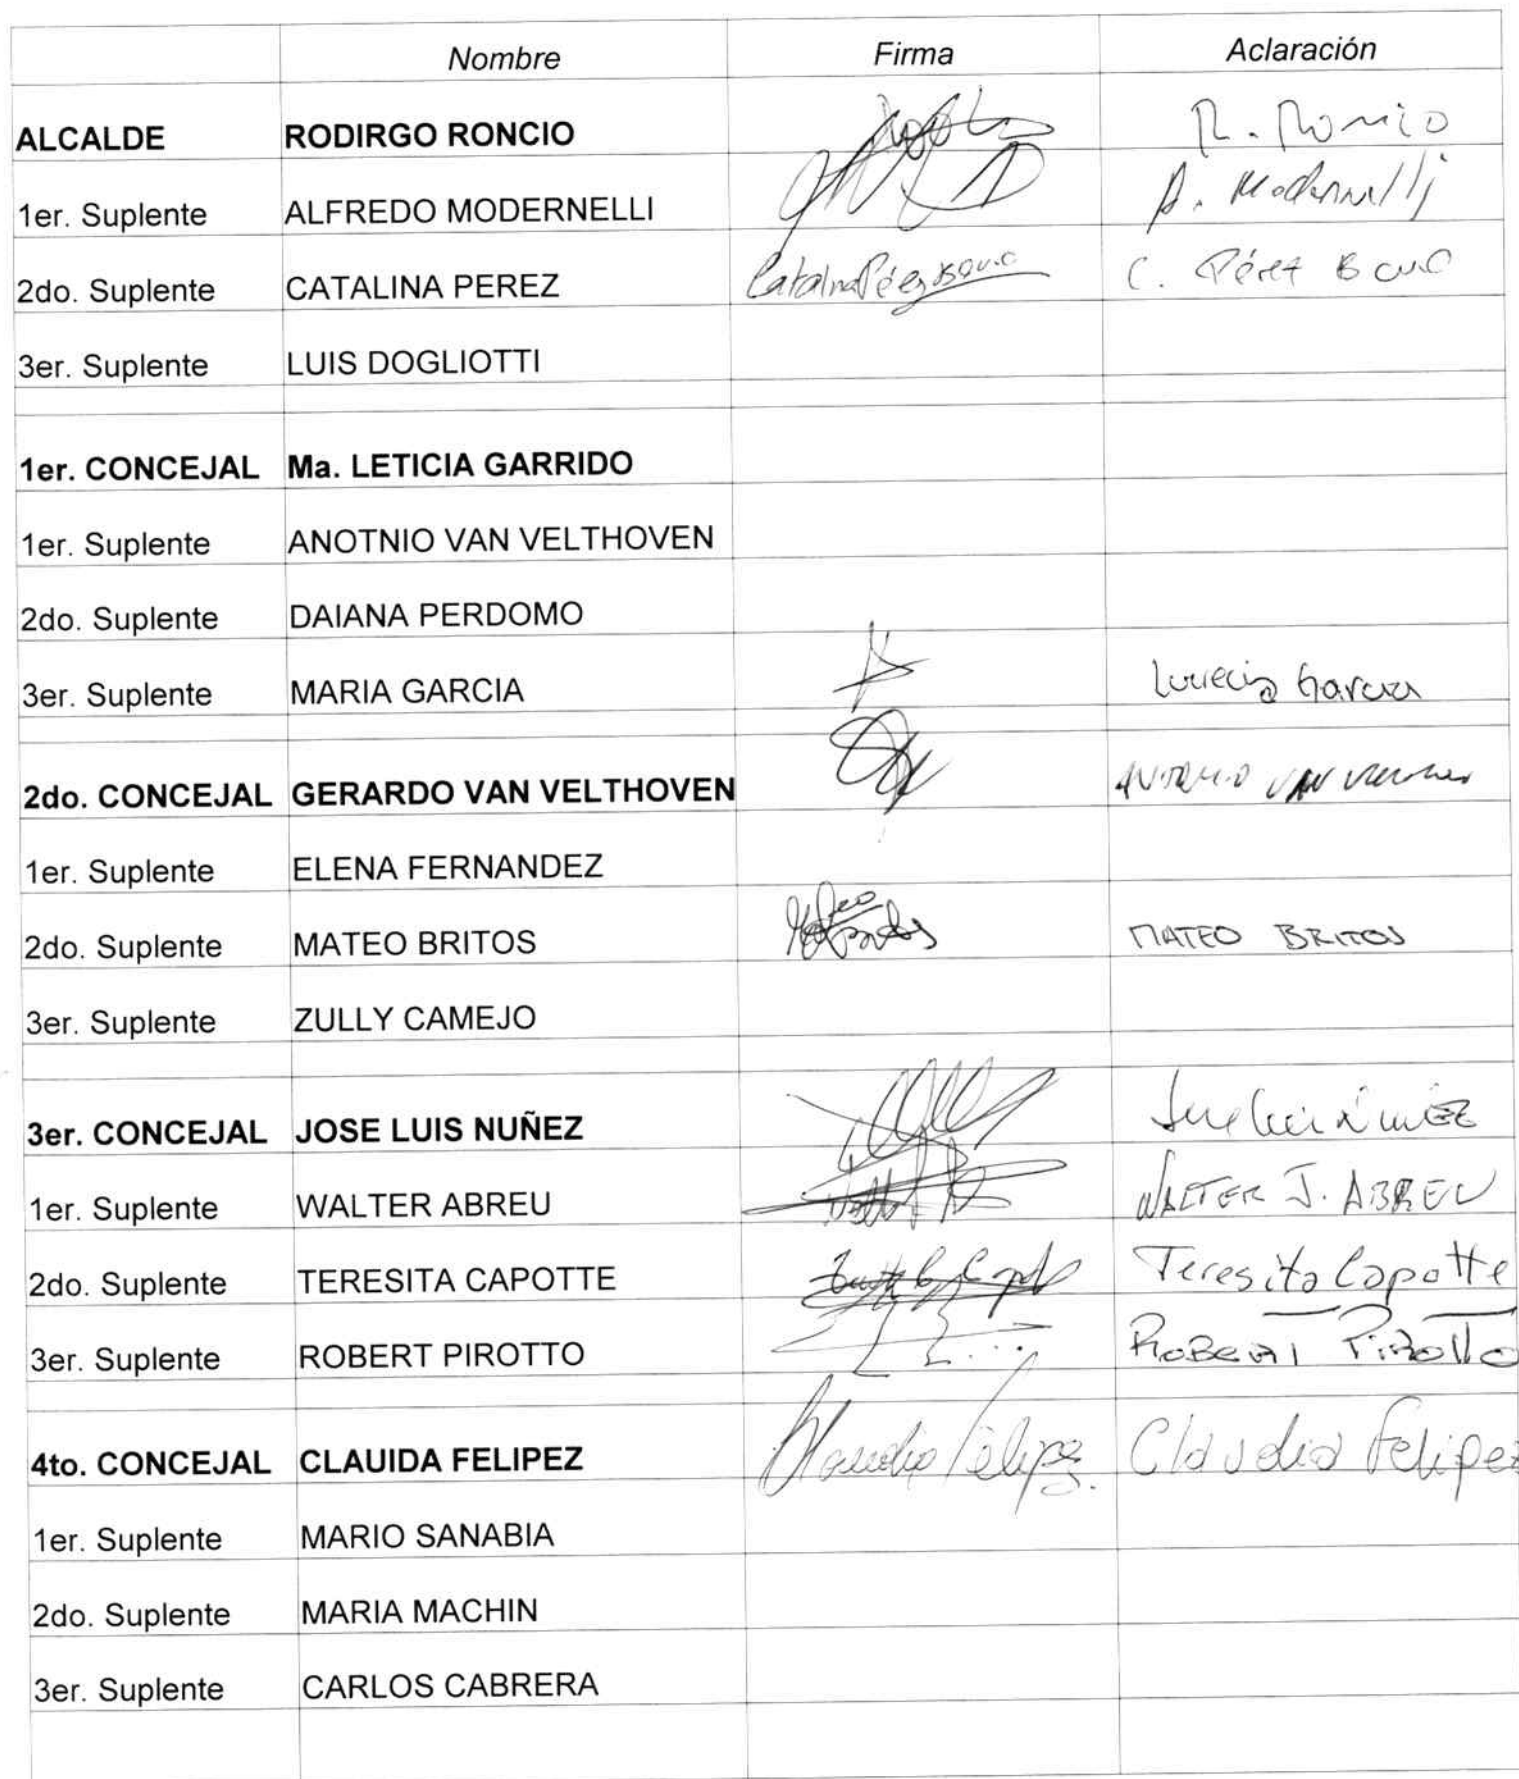 Nombre Firma Aclaración
ALCALDE RODIRGO RONCIO R. Roncio
1er. Suplente ALFREDO MODERNELLI A. Modernelli
2do. Suplente CATALINA PEREZ Catalina Pérez C. Pérez
3er. Suplente LUIS DOGLIOTTI
1er. CONCEJAL Ma. LETICIA GARRIDO
1er. Suplente ANOTNIO VAN VELTHOVEN
2do. Suplente DAIANA PERDOMO
3er. Suplente MARIA GARCIA Lucrecia Garcia
2do. CONCEJAL GERARDO VAN VELTHOVEN ANTONIO VAN
1er. Suplente ELENA FERNANDEZ
2do. Suplente MATEO BRITOS Mateo Britos MATEO BRITOS
3er. Suplente ZULLY CAMEJO
3er. CONCEJAL JOSE LUIS NUÑEZ Jose Luis NuñEZ
1er. Suplente WALTER ABREU WALTER J. ABREU
2do. Suplente TERESITA CAPOTTE Teresita Capotte
3er. Suplente ROBERT PIROTTO ROBERT PIROTTO
4to. CONCEJAL CLAUIDA FELIPEZ Claudia Felipez. Claudia Felipez
1er. Suplente MARIO SANABIA
2do. Suplente MARIA MACHIN
3er. Suplente CARLOS CABRERA